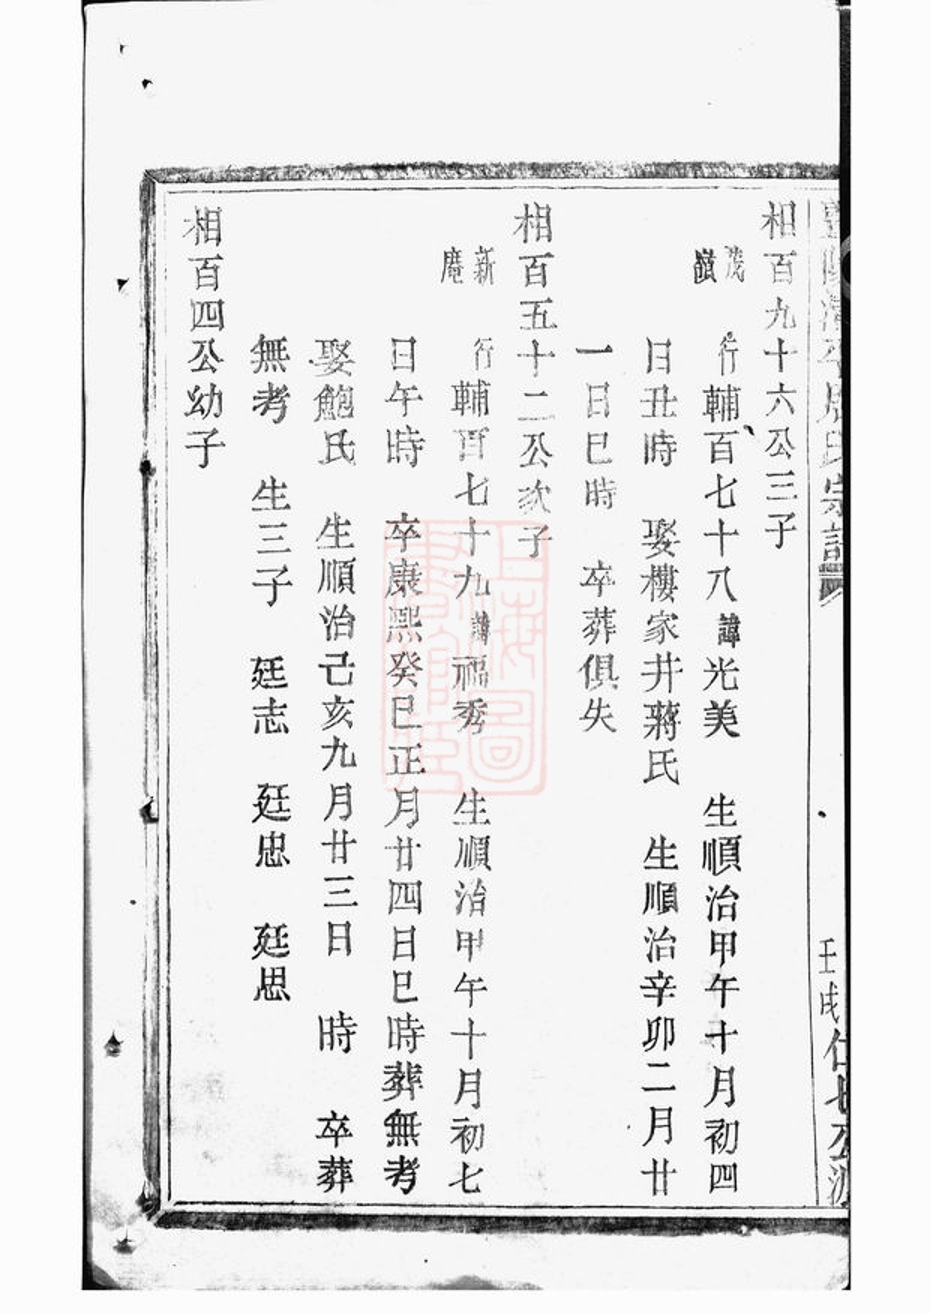 周氏宗譜
壬戌
仕七公派
相百九十六公三子
茂嶺
行輔百七十八諱光美　生順治甲午十月初四
日丑時　娶樓家井蔣氏　生順治辛卯二月廿
一日巳時　卒葬俱失
相百五十二公次子
新庵
行輔百七十九諱福秀　生順治甲午十月初七
日午時　卒康熙癸巳正月廿四日巳時葬無考
娶鮑氏　生順治己亥九月廿三日　時　卒葬
無考　生三子　廷志　廷忠　廷思
相百四公幼子
上海圖書館藏